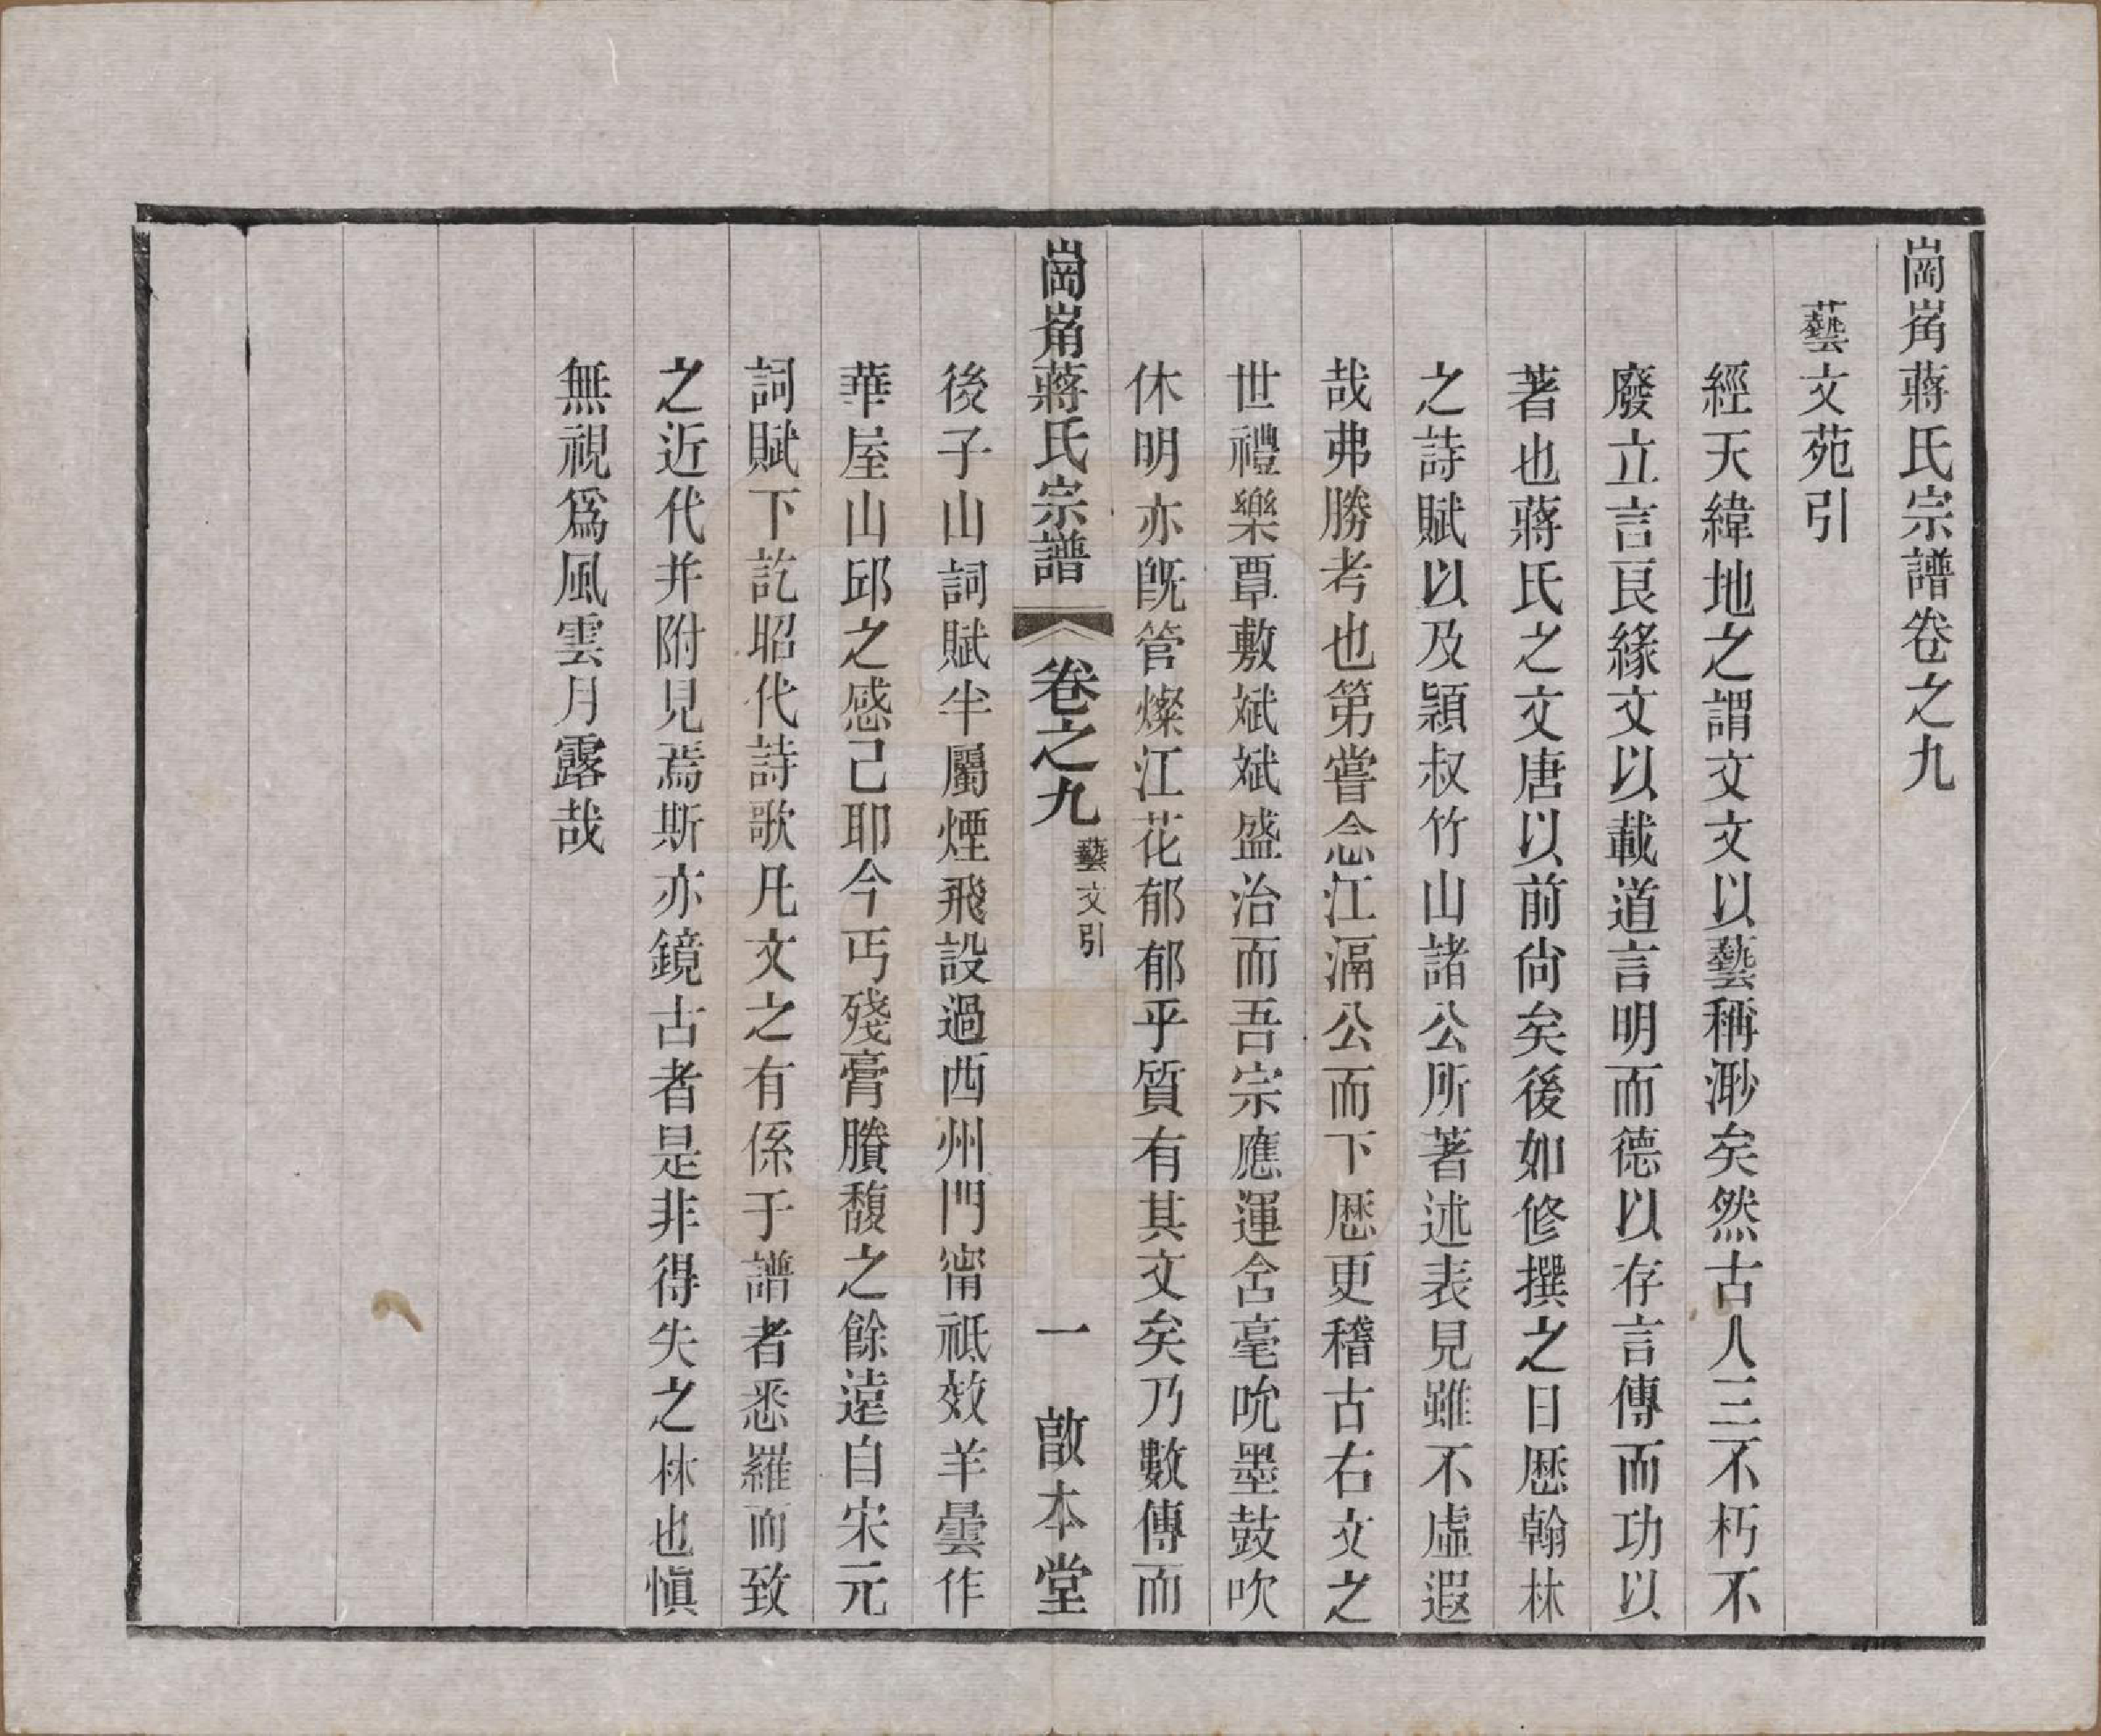 崗崗蔣氏宗譜卷之九
藝文苑引
經天緯地之謂文文以藝稱渺矣然古人三不朽不
廢立言良緣文以載道言明而德以存言傳而功以
著也蔣氏之文唐以前尙矣後如修撰之日歷翰林
之詩賦以及穎叔竹山諸公所著述表見雖不虛遐
哉弗勝考也第嘗念江滆公而下歷更稽古右文之
世禮樂覃敷斌斌盛治而吾宗應運含毫吮墨鼓吹
休明亦旣管燦江花郁郁乎質有其文矣乃數傳而
崗崗蔣氏宗譜 卷之九 藝文引 一 啟本堂
後子山詞賦半屬煙飛設過西州門甯祇效羊曇作
華屋山邱之感已耶今丐殘膏賸馥之餘遠自宋元
詞賦下訖昭代詩歌凡文之有係于譜者悉羅而致
之近代并附見焉斯亦鏡古者是非得失之林也愼
無視爲風雲月露哉